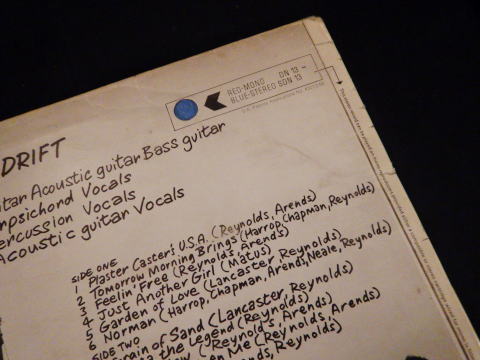 RED-MONO DN 13 -
BLUE-STEREO SDN 13
DRIFT
itar Acoustic guitar Bass guitar
rpsichord Vocals
ercussion Vocals
Acoustic guitar Vocals
SIDE ONE
1 Plaster Caster's U.S.A. (Reynolds, Arends)
2 Tomorrow Morning Brings (Harrop, Chapman, Reynolds)
3 Feelin' Free (Reynolds, Arends)
4 Just Another Girl (Matus)
5 Garden of Love (Lancaster Reynolds)
6 Norman (Harrop, Chapman, Arends, Neale, Reynolds)
SIDE TWO
rain of Sand (Lancaster Reynolds)
the Legend (Reynolds, Arends)
on Me (Reynolds, Arends)
ends, Reynolds)